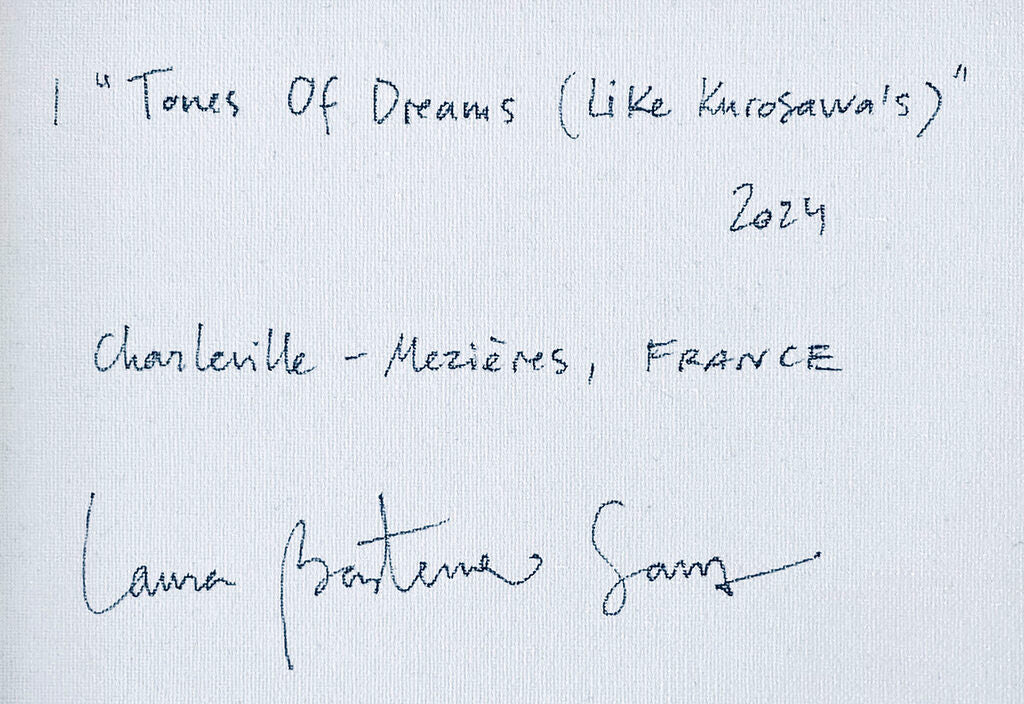 1 "Tones Of Dreams (Like Kurosawa's)"
2024
Charleville - Mezières, FRANCE
Laura Sanz